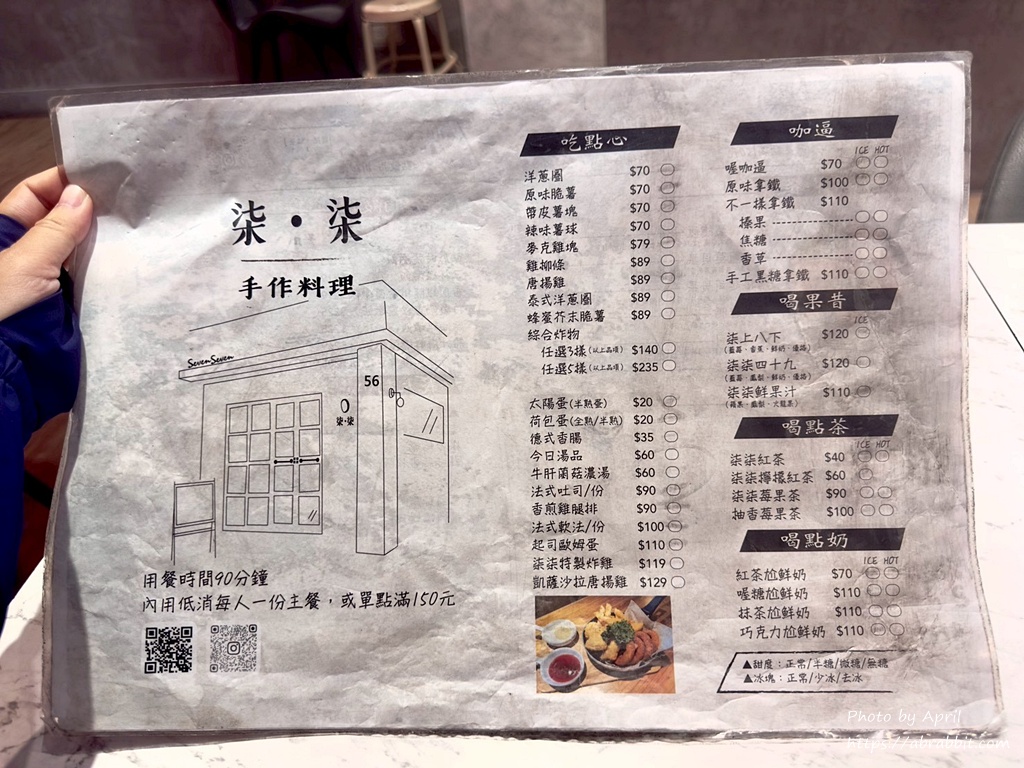 柒・柒
手作料理
SevenSeven
56
柒·柒
用餐時間90分鐘
內用低消每人一份主餐，或單點滿150元
吃點心
洋蔥圈 $70
原味脆薯 $70
帶皮薯塊 $70
辣味薯球 $70
麥克雞塊 $79
雞柳條 $89
唐揚雞 $89
泰式洋蔥圈 $89
蜂蜜芥末脆薯 $89
綜合炸物
任選3樣(以上品項) $140
任選5樣(以上品項) $235
太陽蛋(半熟蛋) $20
荷包蛋(全熟/半熟) $20
德式香腸 $35
今日湯品 $60
牛肝菌菇濃湯 $60
法式吐司/份 $90
香煎雞腿排 $90
法式軟法/份 $100
起司歐姆蛋 $110
柒柒特製炸雞 $119
凱薩沙拉唐揚雞 $129
咖逼
ICE HOT
喔咖逼 $70
原味拿鐵 $100
不一樣拿鐵 $110
榛果
焦糖
香草
手工黑糖拿鐵 $110
喝果昔
ICE
柒上八下 $120
(藍莓、香蕉、鮮奶、優格)
柒柒四十九 $120
(藍莓、鳳梨、鮮奶、優格)
柒柒鮮果汁 $110
(蘋果、鳳梨、火龍果)
喝點茶
ICE HOT
柒柒紅茶 $40
柒柒檸檬紅茶 $60
柒柒莓果茶 $90
柚香莓果茶 $100
喝點奶
ICE HOT
紅茶尬鮮奶 $70
喔糖尬鮮奶 $110
抹茶尬鮮奶 $110
巧克力尬鮮奶 $110
▲甜度：正常/半糖/微糖/無糖
▲冰塊：正常/少冰/去冰
Photo by April
https://abrabbit.com